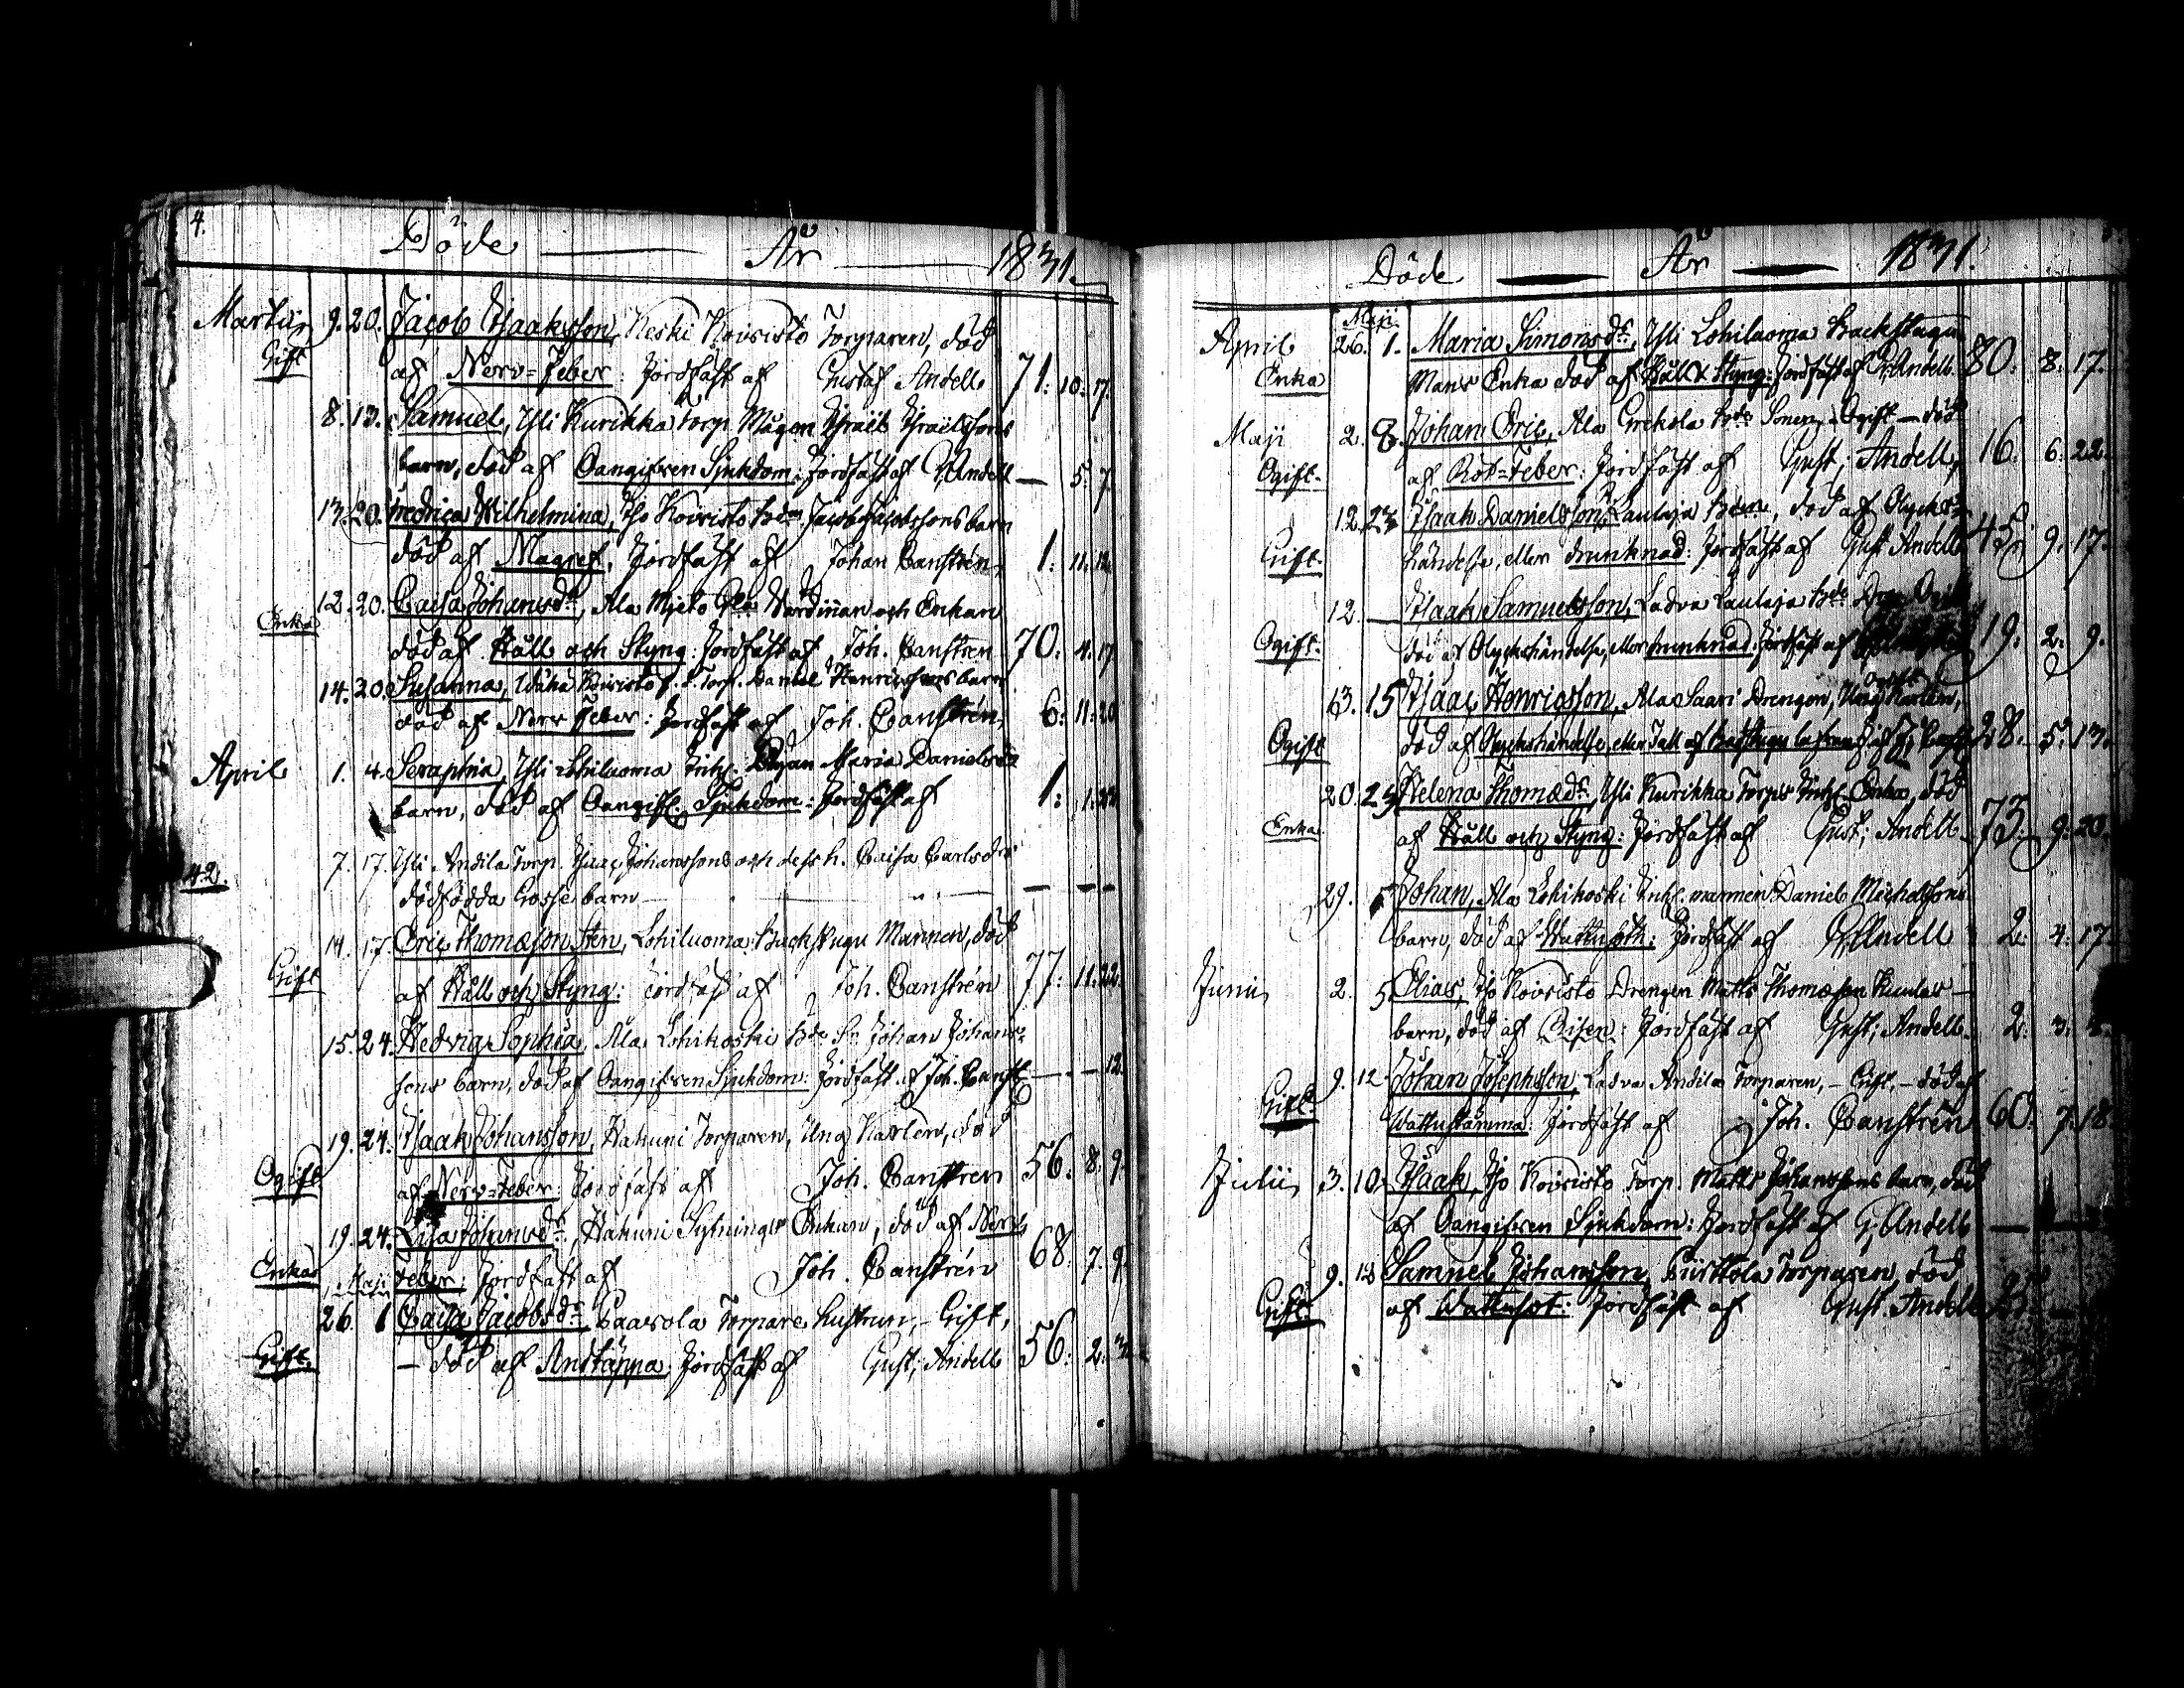 4.
Döde — År — 1831.
Martii 9. 20. Jacob Isaaksson, Keski Koivisto Torparen, död
Gift af Nerv=Feber: Jordfäst af Gustaf Andell 71: 10: 17.
8. 13. Samuel, Yli Kurikka torp. Mågen Israël Israëlssons
barn, död af Oangifven Sjukdom: Jordfäst af G. Andell — 5: 7.
13. 20. Fredrica Wilhelmina, Iso Koivisto Jacob Jacobssons barn
död af Magref, Jordfäst af Johan Canstrén, 1: 11: 12.
12. 20. Caisa Johansdr, Ala Mieto Värdinnan och Enkan
Enka död af Håll och Styng: Jordfäst af Joh. Canstrén 70: 4: 17
14. 20. Susanna, Wähä Koivisto Torp. Daniel Henricssons barn
död af Nerv Feber: Jordfäst af Joh. Canstrén, 6: 11: 20
April 1. 4. Seraphia, Yli Lohiluoma Inh. Pigan Maria Danielsdrs
barn, död af Oangifv. Sjukdom: Jordfäst af 1: 1:
42. 7. 17. Yli Andila Torp. Isaac Johanssons och dess h. Caisa Carlsdrs
dödfödda Gosse barn — — —
14. 17. Eric Thomæson Sten, Lohiluoma Backstugu Mannen, död
Gift af Håll och Styng: Jordfäst af Joh. Canstrén 77: 11: 22.
15. 24. Hedvig Sophia, Ala Lohikoski Bde Sn Johan Johans=
sons barn, död af Oangifven Sjukdom: Jordfäst af Joh. Canst. — — 12.
19. 24. Isaak Johansson, Hakuni Torparen, Ung Karlen, död
Ogift af Nerv=Feber: Jordfäst af Joh. Canstren 56: 8: 9.
19. 24. Lisa Johansdr, Hakuni Sytnings Enkan, död af Nerv
Enka Maji feber: Jordfäst af Joh. Canstrén 68: 7: 9.
26. 1 Caisa Jacobsdr, Paavola Torpare hustrun, – Gift,
Gift. — död af Andtäppa: Jordfäst af Gust; Andell 56: 2:
Döde — År — 1831.
Maji
April 26. 1. Maria Simonsdr, Yli Lohiluoma Backstugu
Enka Mans Enka död af Håll & Styng: Jordfäst af G. Andell. 80: 8: 17.
Maji 2. 8. Johan Eric, Ala Grekola Bde Sonen, Ogift, – död
Ogift. af Röt=Feber: Jordfäst af Gust; Andell, 16: 6: 22.
12. 23 Isaak Danielsson, Laulaja död af Olycks=
Gift. händelse, eller drunknad: Jordfäst af Gust Andell 45: 9: 17.
12. — Isaak Samuelsson, Ladva Laulaja Bde
Ogift. död af Olyckshändelse, eller drunknad. Jordfäst af 19: 2: 9.
Ogift
13. 15 Isaac Henricsson, Ala Saari Drengen, Ung Karlen,
Ogift död af Olyckshändelse, eller fall af 28: 5: 13.
20. 23 Helena Thomædr, Yli Kurikka Torps Inh. Enka, död
Enka af Håll och Styng: Jordfäst af Gust; Andell 73: 9: 20.
29. 5 Johan, Ala Lohikoski Inh. mannen Daniel Michelssons
barn, död af Jordfäst af G. Andell 2: 4: 17
Junii 2. 5. Elias, Iso Koivisto Drengen Matts Thomæson —
barn, död af Jordfäst af Gust; Andell. 2: 3:
9. 12 Johan Josephsson, Ladva Andila Torparen, – Gift, – död af
Gift. Wattustämma: Jordfäst af Joh. Canstrén 60: 7: 18.
Julii 3. 10. Isaak, Iso Koivisto Torp. Matts Johanssons barn, död
af Oangifven Sjukdom: Jordfäst af G. Andell —
9. 12 Samuel Johansson, Piirttola Torparen, död
Gift. af Wattusot: Jordfäst af Gust. Andell